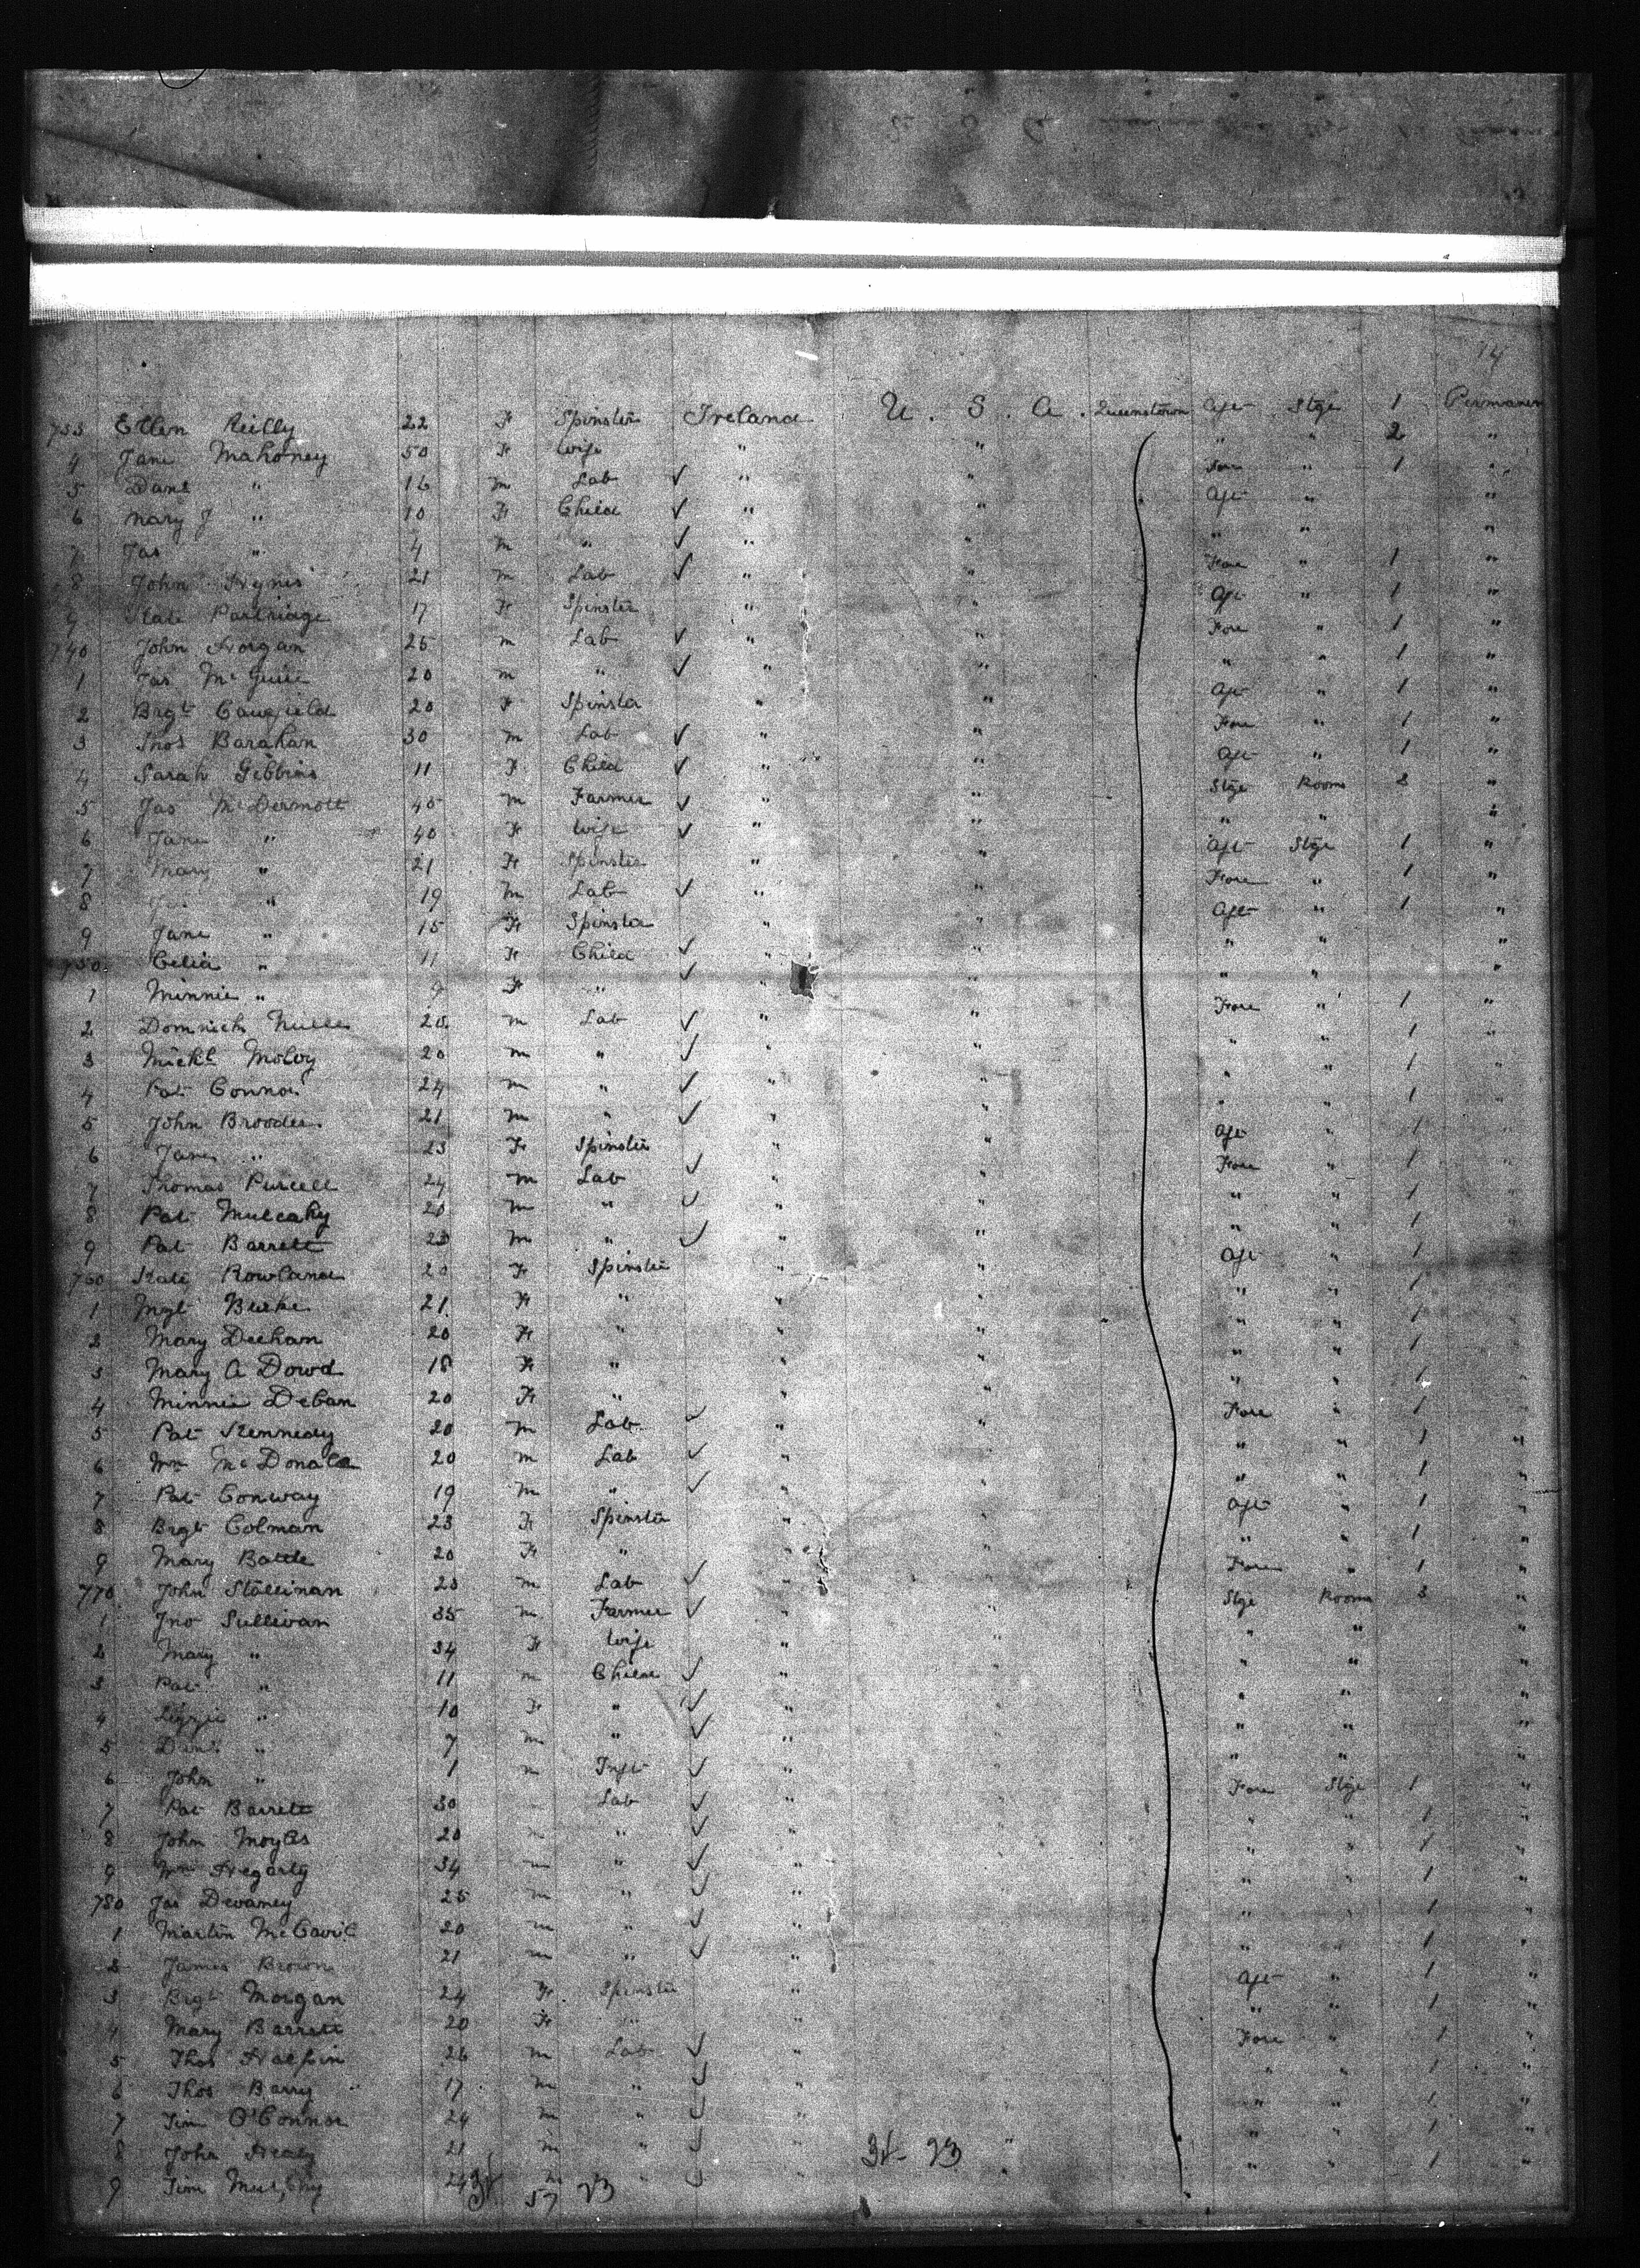 14
733 Ellen Reilly 22 F Spinster Ireland U. S. A. Queenstown Aft Stge 1 Permanen
4 Jane Mahoney 50 F Wife " " " " 2 "
5 Danl " 16 m Lab ✓ " " Fore " 1 "
6 Mary J " 10 F Child ✓ " " Aft " "
7 Jas " 4 m " ✓ " " " " "
8 John Hynes 21 m Lab ✓ " " Fore " 1 "
9 Kate Partridge 17 F Spinster " " Aft " 1 "
740 John Horgan 25 m Lab ✓ " " Fore " 1 "
1 Jas McGuire 20 m " ✓ " " " " 1 "
2 Brgt Caugfield 20 F Spinster " " Aft " 1 "
3 Thos Barahan 30 m Lab ✓ " " Fore " 1 "
4 Sarah Gibbins 11 F Child ✓ " " Aft " 1 "
5 Jas McDermott 45 m Farmer ✓ " " Stge Rooms 2 "
6 Jane " 40 F Wife ✓ " " " " "
7 Mary " 21 F Spinster " " Aft Stge 1 "
8 " 19 m Lab ✓ " " Fore " 1 "
9 Jane " 15 F Spinster " " Aft " 1 "
750 Celia " 11 F Child ✓ " " " " "
1 Minnie " F " ✓ " " " " "
2 Domnick m Lab ✓ " " Fore " 1 "
3 Michl Moloy 20 m " ✓ " " " " 1 "
4 Pat Connor 24 m " ✓ " " " " 1 "
5 John Brooder 21 m " ✓ " " " " 1 "
6 Jane " 23 F Spinster " " Aft " 1 "
7 Thomas Purcell 24 m Lab ✓ " " Fore " 1 "
8 Pat Mulcahy 20 m " ✓ " " " " 1 "
9 Pat Barrett 23 m " ✓ " " " " 1 "
760 Kate Rowland 20 F Spinster " " Aft " 1 "
1 Mgt Burke 21 F " " " " " 1 "
2 Mary Deehan 20 F " " " " " 1 "
3 Mary A Dowd 18 F " " " " " 1 "
4 Minnie Deban 20 F " " " " " 1 "
5 Pat Kennedy 20 m Lab ✓ " " Fore " 1 "
6 Wm McDonald 20 m Lab ✓ " " " " 1 "
7 Pat Conway 19 m " ✓ " " " " 1 "
8 Brgt Colman 23 F Spinster " " Aft " 1 "
9 Mary Battle 20 F " " " " " 1 "
770 John Stallinan 23 m Lab ✓ " " Fore " 1 "
1 Jno Sullivan 35 m Farmer ✓ " " Stge Rooms 3 "
2 Mary " 34 F Wife " " " " "
3 Pat " 11 m Child ✓ " " " " "
4 Lizzie " 10 F " ✓ " " " " "
5 Danl " 7 m " ✓ " " " " "
6 John " 1 m Inft ✓ " " " " "
7 Pat Barrett 30 Lab ✓ " " Fore Stge 1 "
8 John Moyles 20 m " ✓ " " " " 1 "
9 Wm Hegarty 34 m " ✓ " " " " 1 "
780 Jas Devaney 25 m " ✓ " " " " 1 "
1 Martin 20 m " ✓ " " " " 1 "
2 James Brown 21 m " ✓ " " " " 1 "
3 Brgt Morgan 24 F Spinster " " Aft " 1 "
4 Mary Barrett 20 F " " " " " 1 "
5 Thos Halpin 26 m Lab ✓ " " Fore " 1 "
6 Thos Barry 17 m " ✓ " " " " 1 "
7 Tim O'Connor 24 m " ✓ " " " " 1 "
8 John Healy 21 m " ✓ " " " " 1 "
9 Tim Murphy 24 m " ✓ " " " " 1 "
34 - 23
34 57 23